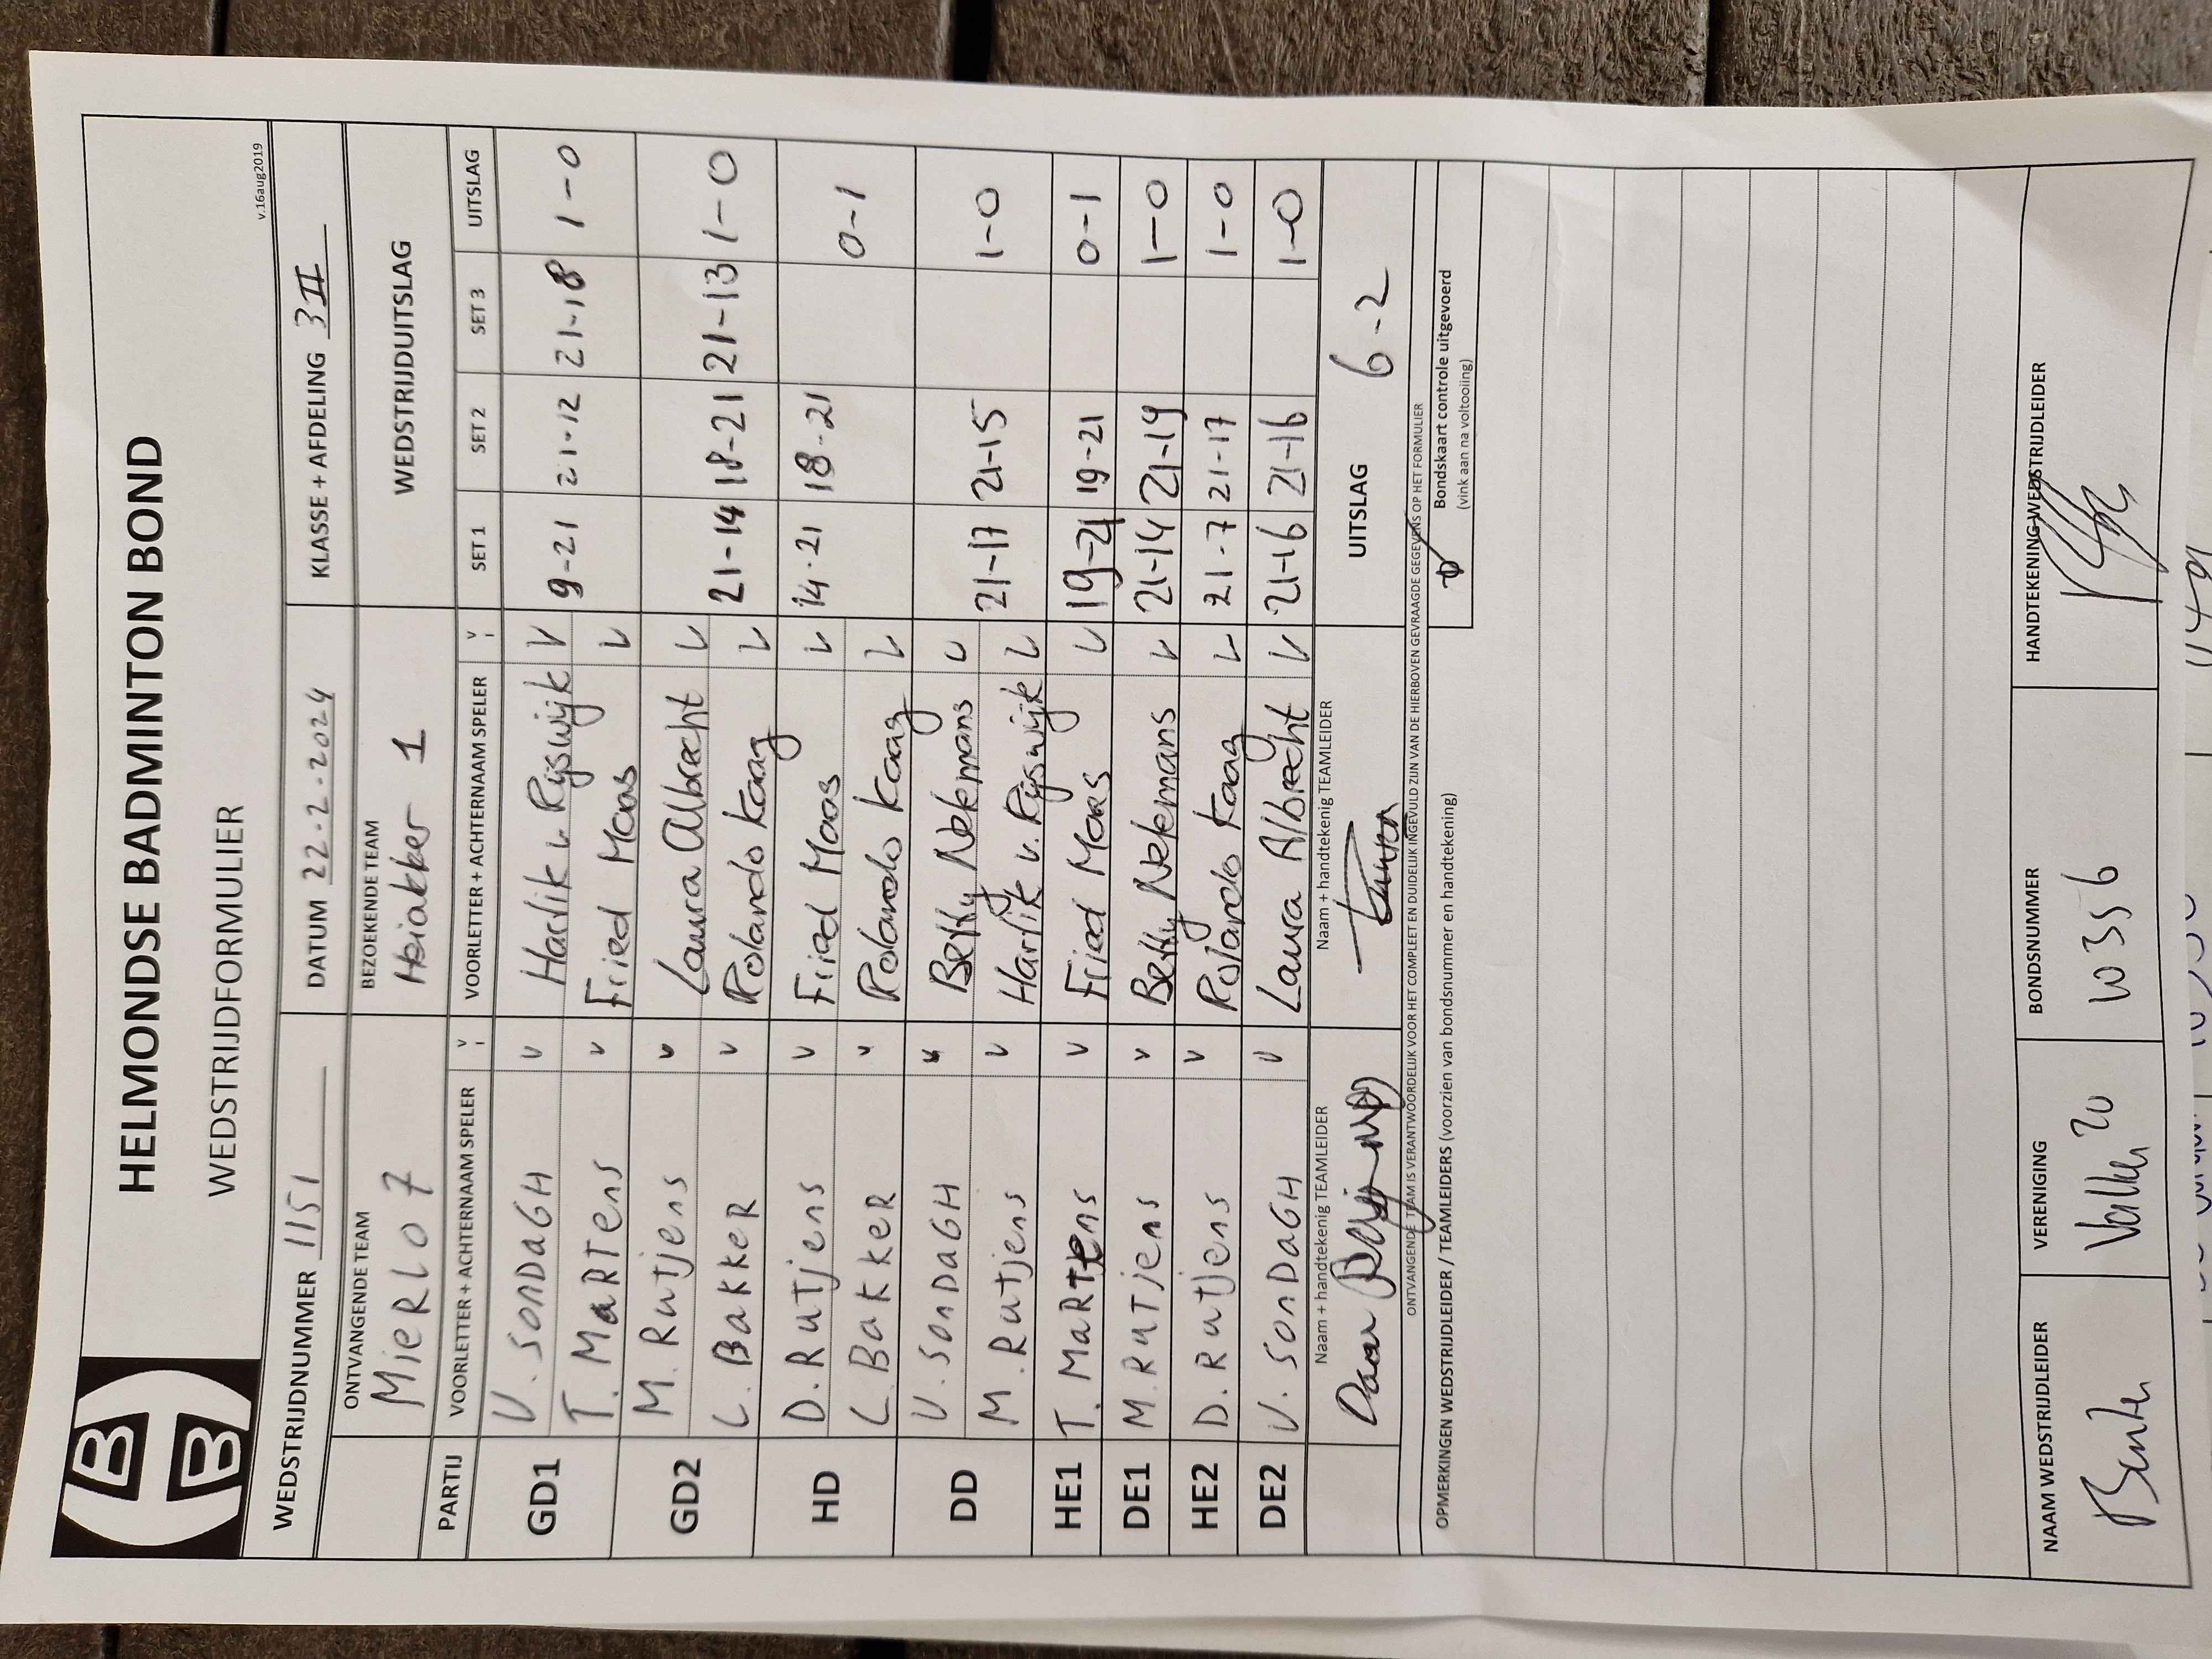 HELMONDSE BADMINTON BOND
WEDSTRIJDFORMULIER
v.16aug2019
WEDSTRIJDNUMMER 1151 DATUM 22-2-2024 KLASSE + AFDELING 3 II
ONTVANGENDE TEAM BEZOEKENDE TEAM WEDSTRIJDUITSLAG
MieRlo 7 Heiakker 1
PARTIJ VOORLETTER + ACHTERNAAM SPELER V VOORLETTER + ACHTERNAAM SPELER V SET 1 SET 2 SET 3 UITSLAG
GD1 V. SonDaGH v Harlik v. Rijswijk V 9-21 21-12 21-18 1-0
T. MaRTens v Fried Maas V
GD2 M. Rutjens v Laura Albrecht V
L. BakkeR v Rolando Kaag V 21-14 18-21 21-13 1-0
HD D. Rutjens v Fried Maas V 14-21 18-21 0-1
L. BakkeR v Rolando Kaag V
DD V. SonDaGH v Betty Nekemans V
M. Rutjens v Harlik v. Rijswijk V 21-17 21-15 1-0
HE1 T. MaRTens v Fried Maas V 19-21 19-21 0-1
DE1 M. RuTjens v Betty Nekemans V 21-14 21-19 1-0
HE2 D. Rutjens v Rolando Kaag V 21-7 21-17 1-0
DE2 V. SonDaGH v Laura Albrecht V 21-16 21-16 1-0
Naam + handtekenig TEAMLEIDER Naam + handtekenig TEAMLEIDER UITSLAG 6-2
ONTVANGENDE TEAM IS VERANTWOORDELIJK VOOR HET COMPLEET EN DUIDELIJK INGEVULD ZIJN VAN DE HIERBOVEN GEVRAAGDE GEGEVENS OP HET FORMULIER
OPMERKINGEN WEDSTRIJDLEIDER / TEAMLEIDERS (voorzien van bondsnummer en handtekening)
Bondskaart controle uitgevoerd
(vink aan na voltooiing)
NAAM WEDSTRIJDLEIDER VERENIGING BONDSNUMMER HANDTEKENING WEDSTRIJDLEIDER
10356